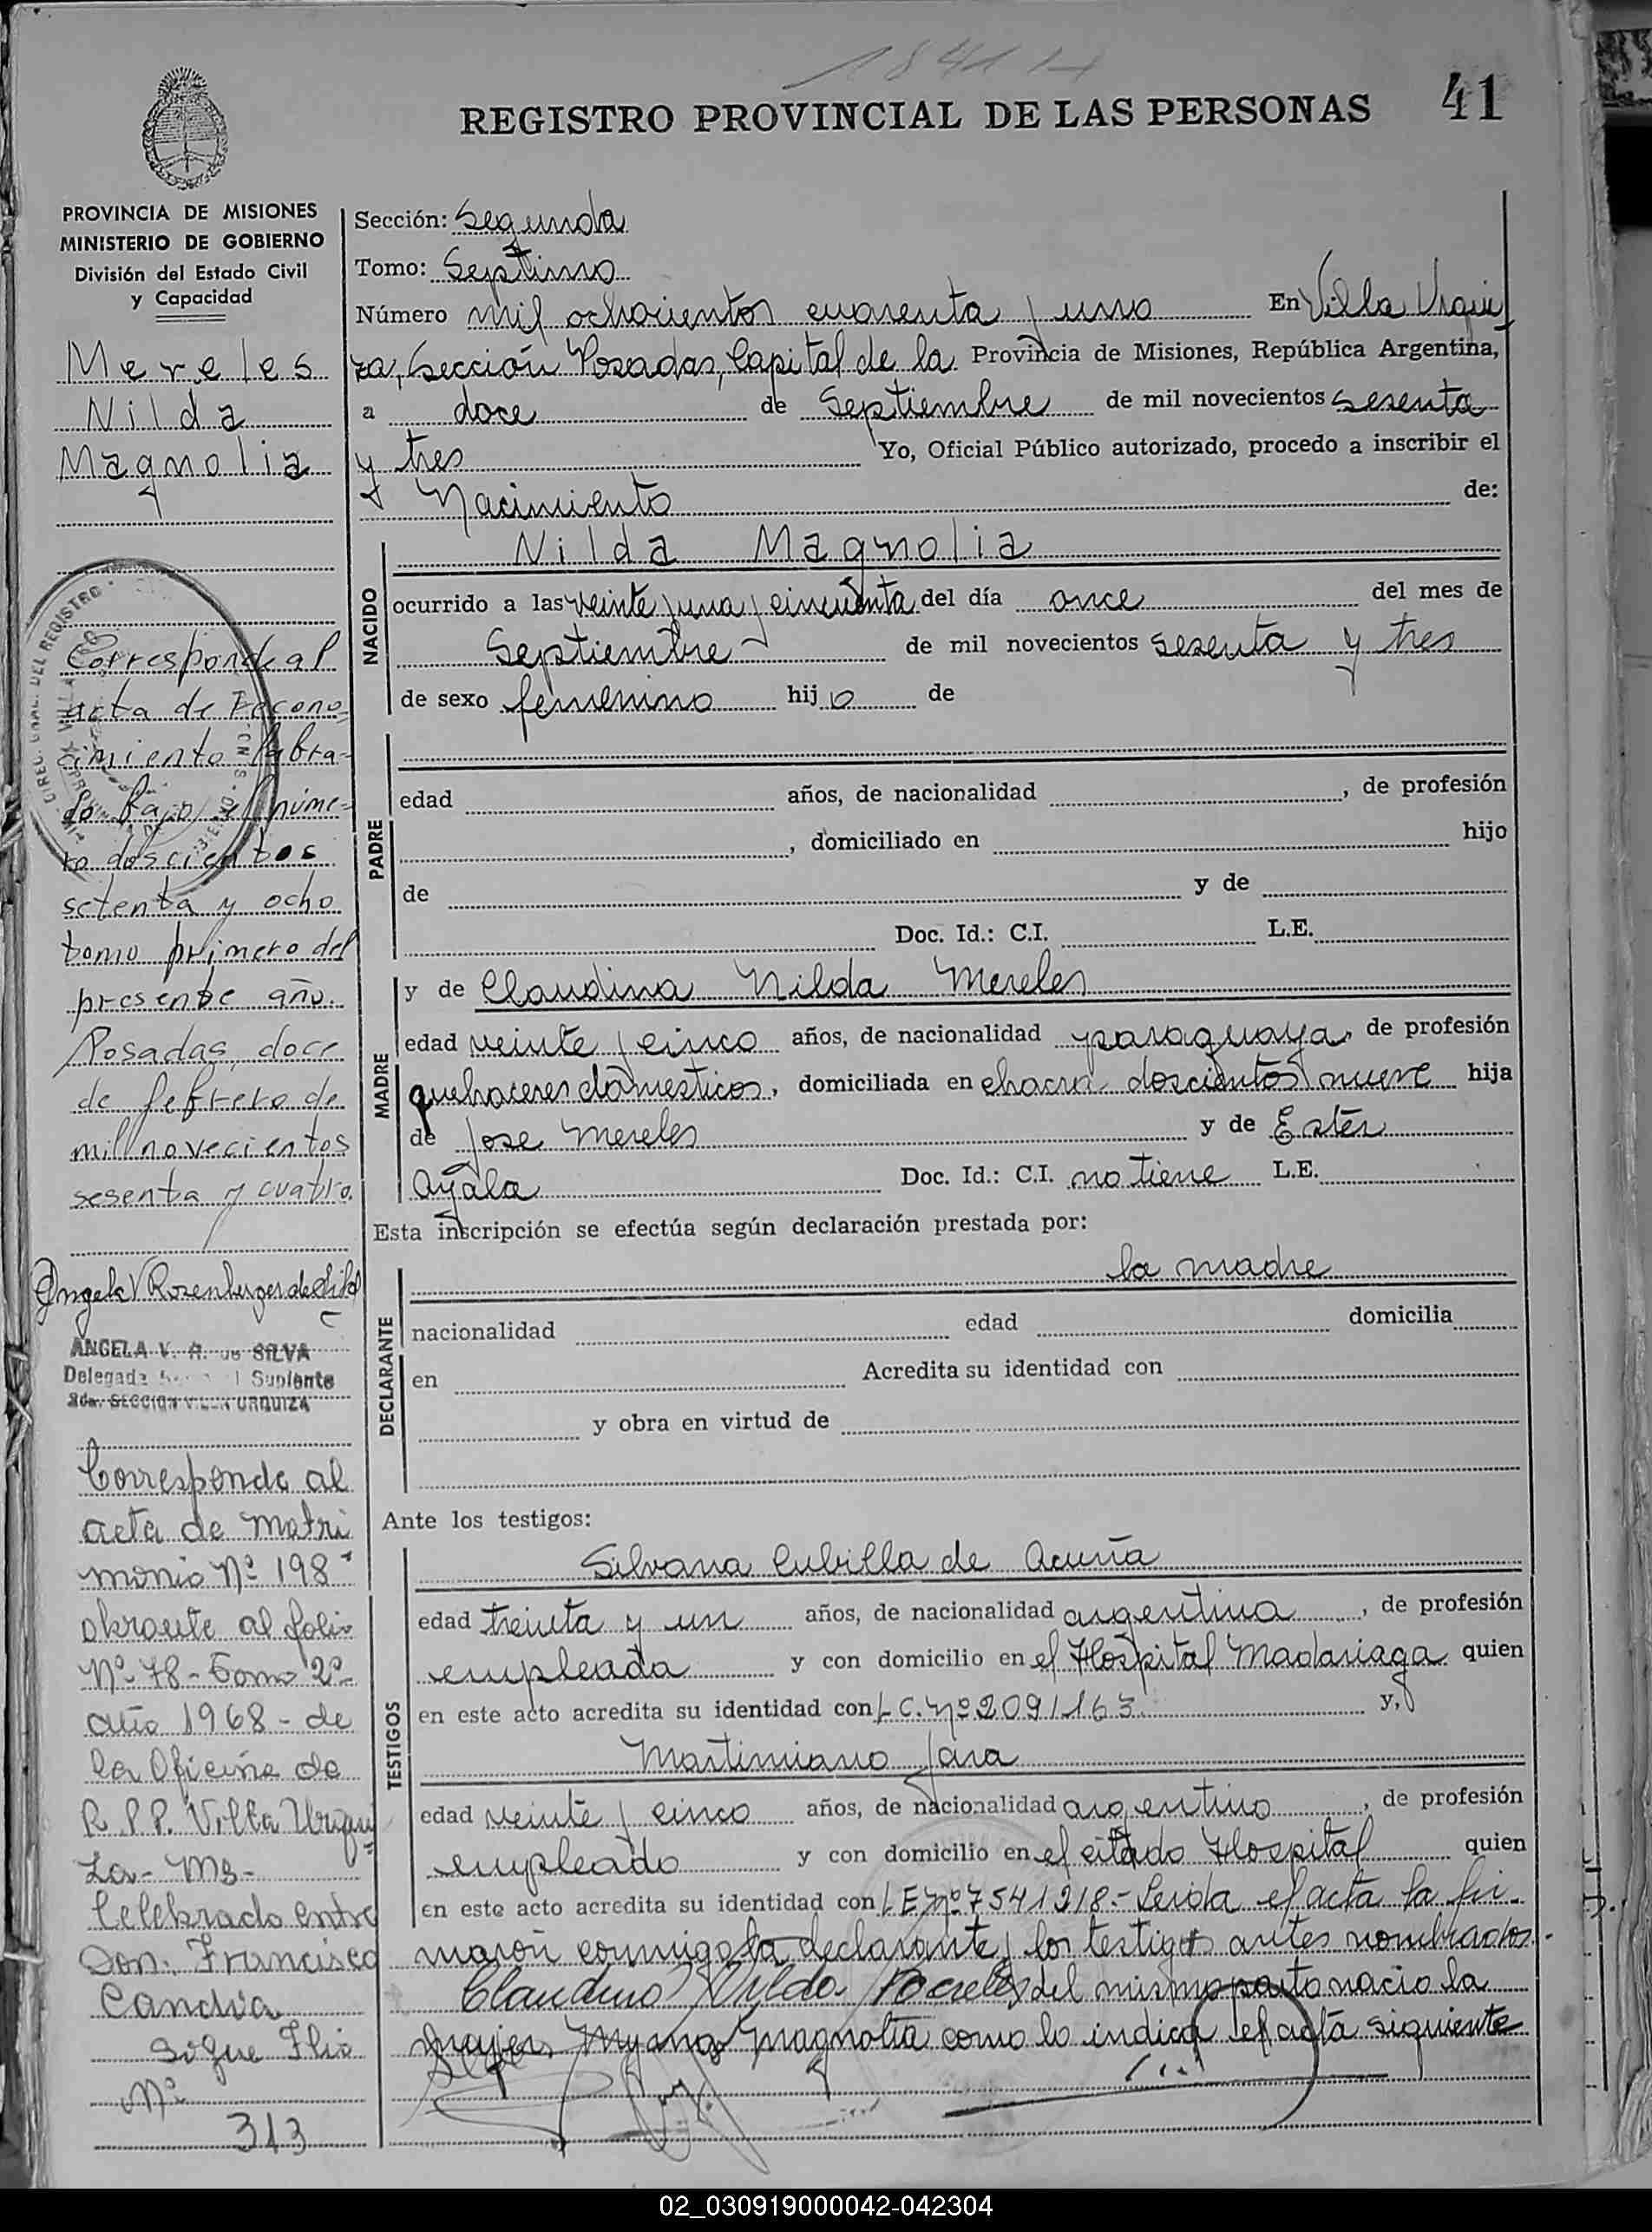 1841 H
REGISTRO PROVINCIAL DE LAS PERSONAS 41
PROVINCIA DE MISIONES
MINISTERIO DE GOBIERNO
División del Estado Civil
y Capacidad
Mereles
Nilda
Magnolia
Corresponde al
acta de Recono
cimiento labra-
do bajo el núme-
ro doscientos
setenta y ocho
tomo primero del
presente año.
Posadas, doce
de febrero de
mil novecientos
sesenta y cuatro.
Angela V Rosenberger de Silva
ANGELA V. R. de SILVA
Delegada Suplente
2da. SECCION VILLA URQUIZA
Corresponde al
acta de matri
monio Nº 198
obrante al folio
Nº 78 - Tomo 2º
año 1968 - de
la Oficina de
R.P.P. Villa Urqui
za - Ms -
Celebrado entre
Don: Francisco
Candia
Sigue Flio
Nº
313
Sección: Segunda
Tomo: Septimo
Número mil ochocientos cuarenta y uno En Villa Urqui
za, Sección Posadas, Capital de la Provincia de Misiones, República Argentina,
a doce de Septiembre de mil novecientos sesenta
y tres Yo, Oficial Público autorizado, procedo a inscribir el
Nacimiento de:
NACIDO
Nilda Magnolia
ocurrido a las veinte y una y cincuenta del día once del mes de
Septiembre de mil novecientos sesenta y tres
de sexo femenino hij a de
PADRE
edad años, de nacionalidad , de profesión
, domiciliado en hijo
de y de
Doc. Id.: C.I. L.E.
MADRE
y de Claudina Nilda Mereles
edad veinte y cinco años, de nacionalidad paraguaya, de profesión
quehaceres domesticos, domiciliada en chacra doscientos nueve hija
de Jose Mereles y de Ester
Ayala Doc. Id.: C.I. no tiene L.E.
Esta inscripción se efectúa según declaración prestada por:
DECLARANTE
la madre
nacionalidad edad domicilia
en Acredita su identidad con
y obra en virtud de
Ante los testigos:
TESTIGOS
Silvana Cubilla de Acuña
edad treinta y un años, de nacionalidad argentina, de profesión
empleada y con domicilio en el Hospital Madariaga quien
en este acto acredita su identidad con L.C. Nº 2091163 y,
Martimiano Jara
edad veinte y cinco años, de nacionalidad argentino, de profesión
empleado y con domicilio en el citado Hospital quien
en este acto acredita su identidad con L E Nº 7541218.- Leida el acta la fir-
maron conmigo la declarante y los testigos antes nombrados.-
Claudina Nilda Mereles del mismo parto nacio la
mujer, Myrna Magnolia como lo indica el acta siguiente
02_030919000042-042304